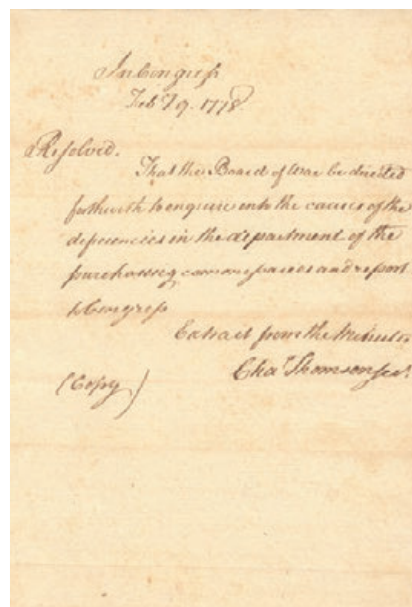 In Congress
Feby 9. 1778
Resolved.
That the Board of War be directed
forthwith to enquire into the causes of the
deficiencies in the department of the
purchasing commissaries and report
to Congress
Extract from the Minutes
Chas Thomson secy
(Copy)